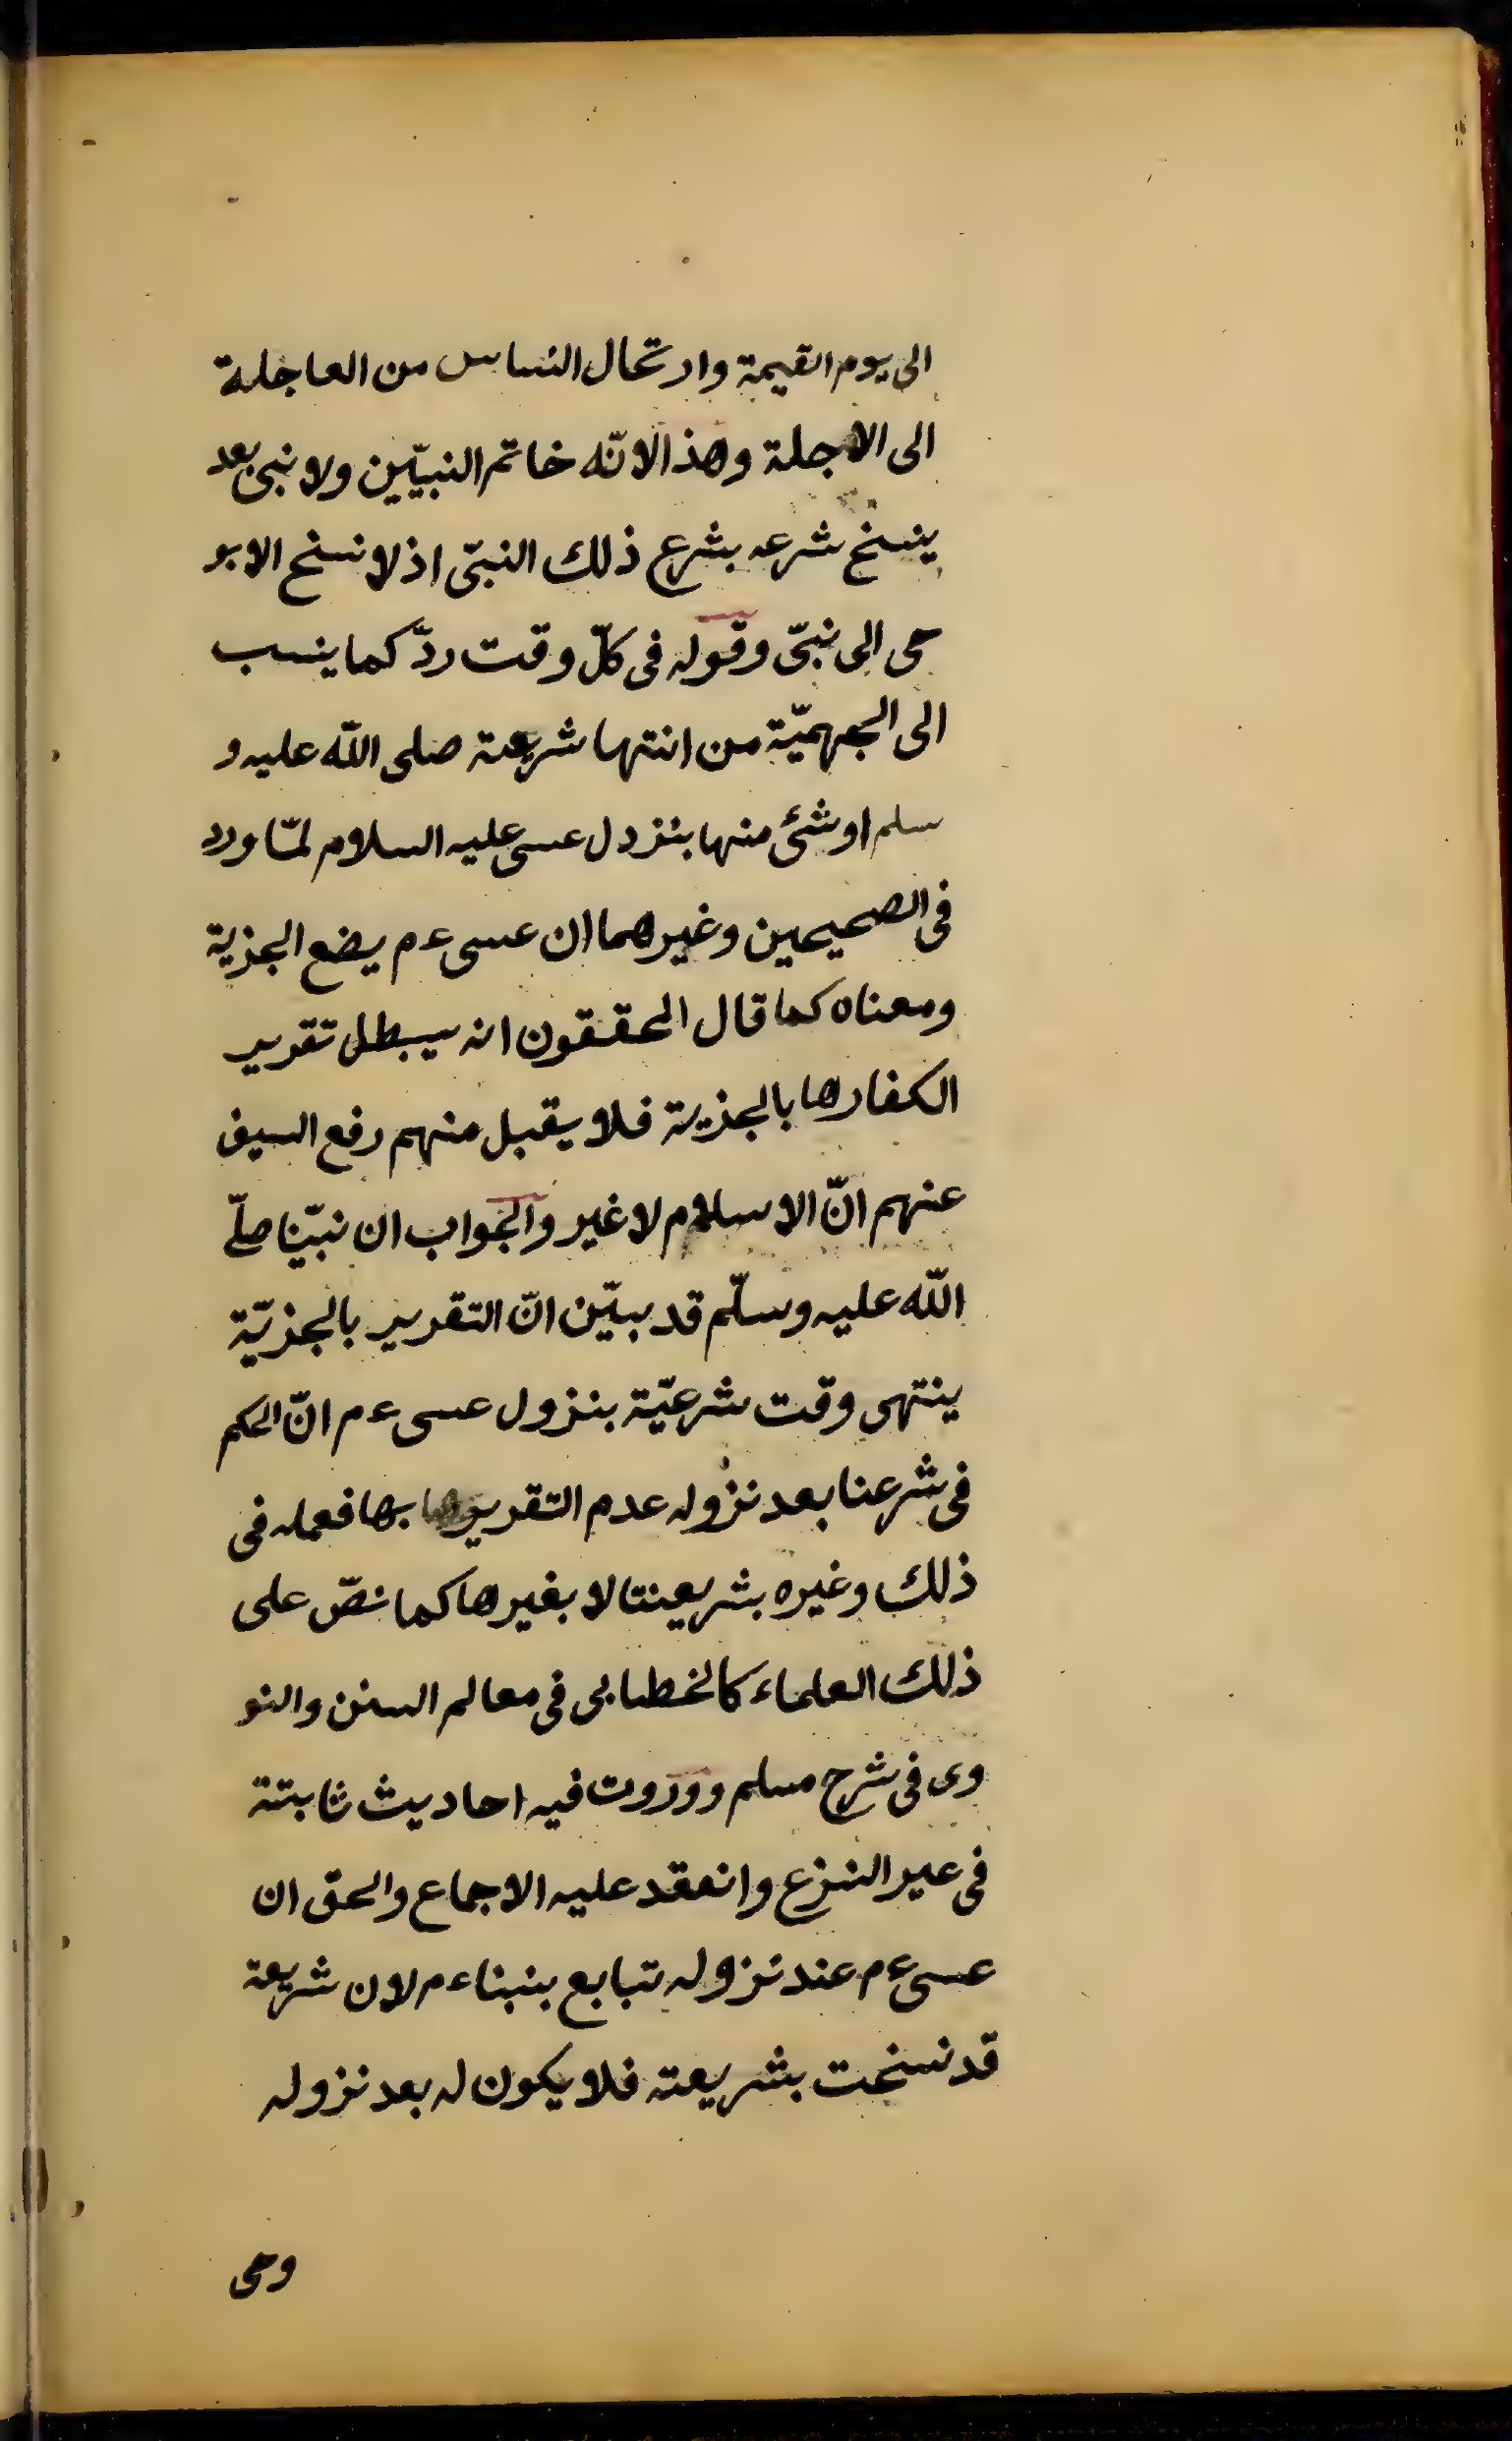 الى يوم القيمة وارتحال الناس من العاجلة
الى الاجلة وهذا لانّه خاتم النبيّين ولا نبى بعد
ينسخ شرعه بشرع ذلك النبىّ اذ لا نسخ الا بو
حى الى نبىّ وقوله فى كلّ وقت ردّ كما ينسب
الى الجهميّة من انتها شريعته صلى اللّه عليه و
سلم او شئ منها بنزول عسى عليه السلام لمّا ورد
فى الصحيحين وغيرهما ان عسى ءم يضع الجزية
ومعناه كما قال المحققون انه يبطل تقرير
الكفار ها بالجزية فلا يقبل منهم رفع السيف
عنهم انّ الاسلام لا غير والجواب ان نبيّنا صلّى
اللّه عليه وسلّم قد بيّن انّ التقرير بالجزيّة
ينتهى وقت شرعيّة بنزول عسى ءم انّ الحكم
فى شرعنا بعد نزوله عدم التقرير بها فعمله فى
ذلك وغيره بشريعنتا لا بغيرها كما نصّ على
ذلك العلماء كالخطابى فى معالم السنن والنو
وى فى شرح مسلم ووردت فيه احاديث ثابتة
فى عير النزع وانعقد عليه الاجماع والحق ان
عسى ءم عند نزوله تبابع بنبنا ءم لان شريعة
قد نسخت بشريعته فلا يكون له بعد نزوله
وحى